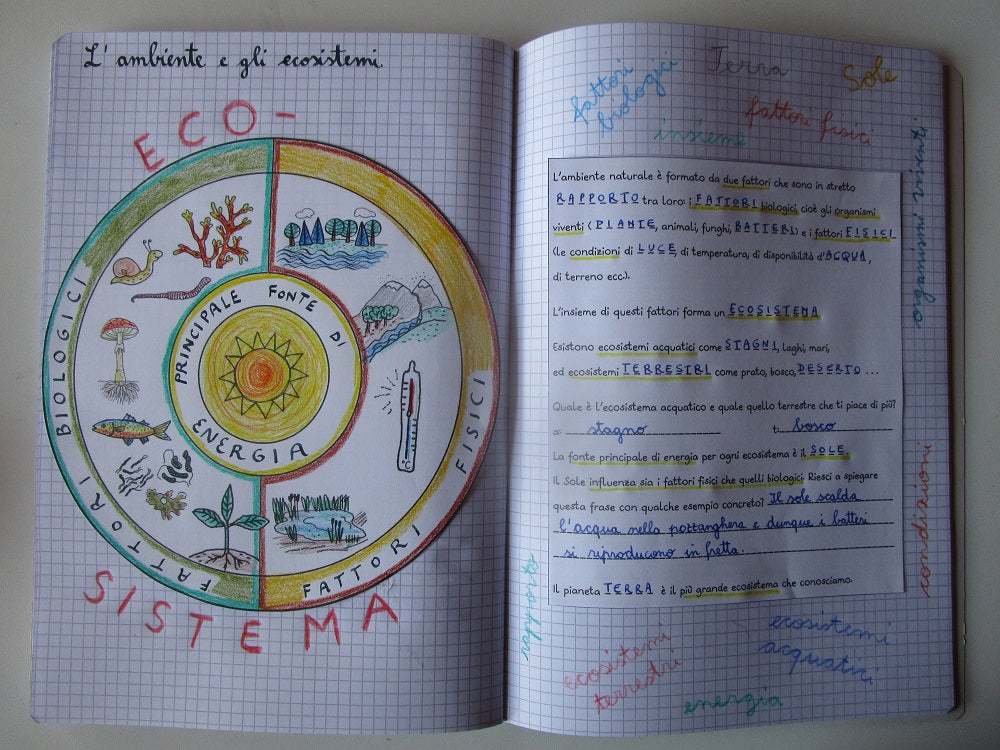 L'ambiente e gli ecosistemi
ECO-
SISTEMA
FATTORI BIOLOGICI
FATTORI FISICI
PRINCIPALE FONTE DI
ENERGIA
fattori
biologici
Terra
Sole
insieme
fattori fisici
organismi viventi
L'ambiente naturale è formato da due fattori che sono in stretto
RAPPORTO tra loro: i FATTORI biologici, cioè gli organismi
viventi (PIANTE, animali, funghi, BATTERI) e i fattori FISICI
(le condizioni di LUCE, di temperatura, di disponibilità d'ACQUA,
di terreno ecc.).
L'insieme di questi fattori forma un ECOSISTEMA
Esistono ecosistemi acquatici come STAGNI, laghi, mari,
ed ecosistemi TERRESTRI come prato, bosco, DESERTO ...
Quale è l'ecosistema acquatico e quale quello terrestre che ti piace di più?
a: stagno t: bosco
La fonte principale di energia per ogni ecosistema è il SOLE.
Il Sole influenza sia i fattori fisici che quelli biologici. Riesci a spiegare
questa frase con qualche esempio concreto? Il sole scalda
l'acqua nella pozzanghera e dunque i batteri
si riproducono in fretta.
Il pianeta TERRA è il più grande ecosistema che conosciamo.
condizioni
rapporto
ecosistemi
terrestri
ecosistemi
acquatici
energia